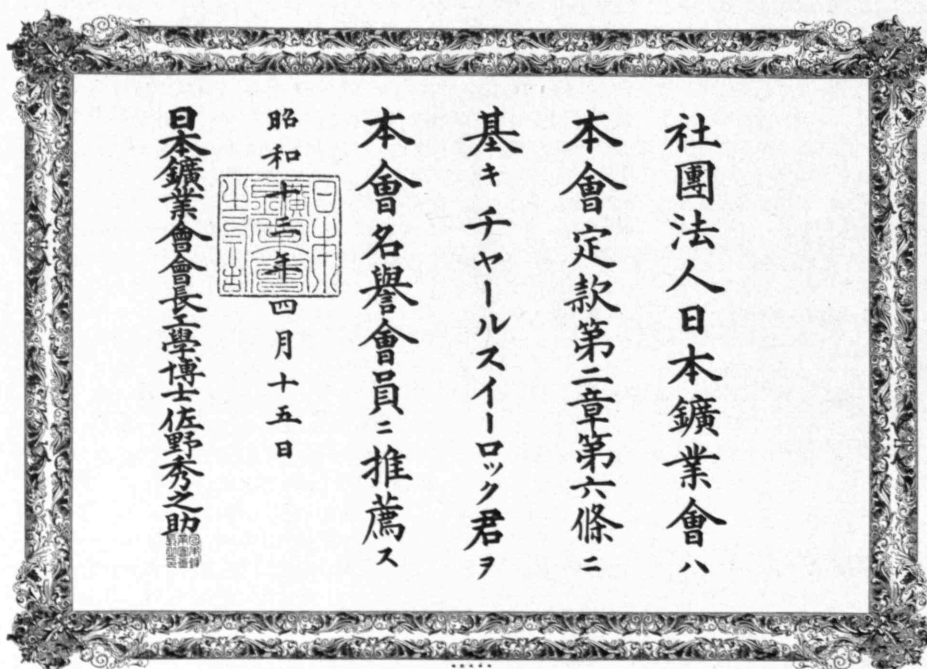 社團法人日本鑛業會ハ
本會定款第二章第六條ニ
基キチャールスイーロック君ヲ
本會名譽會員ニ推薦ス
昭和十二年四月十五日
日本鑛業會會長工學博士佐野秀之助